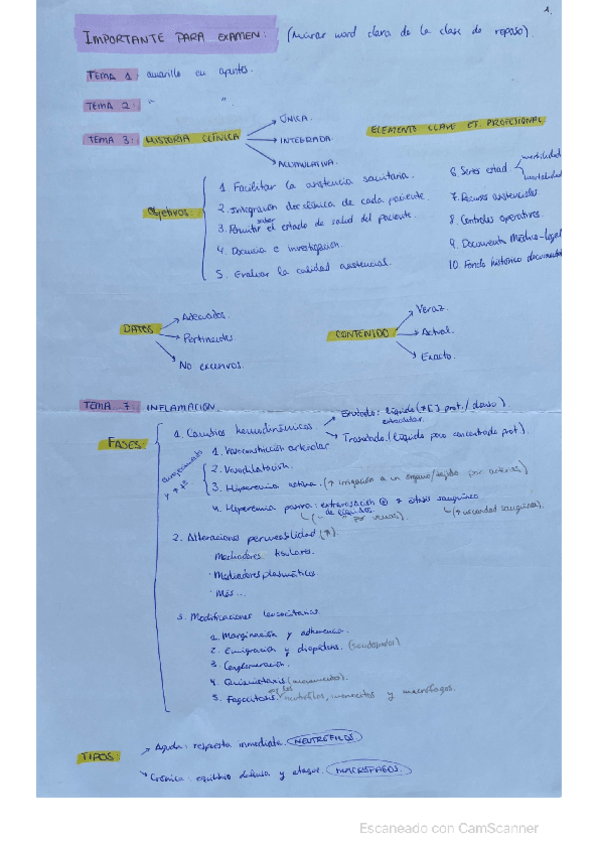 1.
IMPORTANTE PARA EXAMEN: (Mirar word clara de la clase de repaso).
TEMA 1: amarillo en apuntes.
TEMA 2: " "
TEMA 3: HISTORIA CLÍNICA
ÚNICA.
INTEGRADA.
ACUMULATIVA.
ELEMENTO CLAVE ET. PROFESIONAL
Objetivos:
1. Facilitar la asistencia sanitaria.
2. Integración doc clínica de cada paciente.
3. Permitir saber el estado de salud del paciente.
4. Docencia e investigación.
5. Evaluar la calidad asistencial.
6. Series estad
morbilidad
mortalidad
7. Recursos asistenciales
8. Controles operativos.
9. Documento Médico-legal
10. Fondo histórico documental
DATOS
Adecuados.
Pertinentes.
No excesivos.
CONTENIDO
Veraz.
Actual.
Exacto.
TEMA 7: INFLAMACIÓN.
FASES:
1. Cambios hemodinámicos
Exudado: líquido (↑[] prot. / denso)
extracelular.
Trasudado. (Líquido poco concentrado prot).
1. Vasoconstricción arteriolar
2. Vasodilatación.
3. Hiperemia activa. (↑ irrigación a un órgano/tejido por arterias)
4. Hiperemia pasiva: extravasación de líquidos ⊕ ↑ éxtasis sanguíneo
por venas).
(↑ viscosidad sanguínea).
2. Alteraciones permeabilidad (↑).
Mediadores tisulares.
· Mediadores plasmáticos.
· Más...
3. Modificaciones leucocitarias.
1. Marginación y adherencia.
2. Emigración y diapédesis. (seudópodos)
3. Conglomeración.
4. Quimiotaxis (movimientos).
5. Fagocitosis. neutrófilos, monocitos y macrófagos.
TIPOS:
Aguda: respuesta inmediata. NEUTRÓFILOS
Crónica: equilibrio defensa y ataque. MACRÓFAGOS.
Escaneado con CamScanner